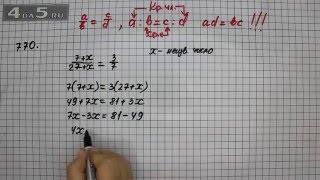 4da5.ru
Кр.чл.
a/b = c/d, a : b = c : d ad = bc !!!
Ср.чл.
770. x - неизв. число
7+x/27+x = 3/7
7(7+x) = 3(27+x)
49+7x = 81+3x
7x-3x = 81-49
4x